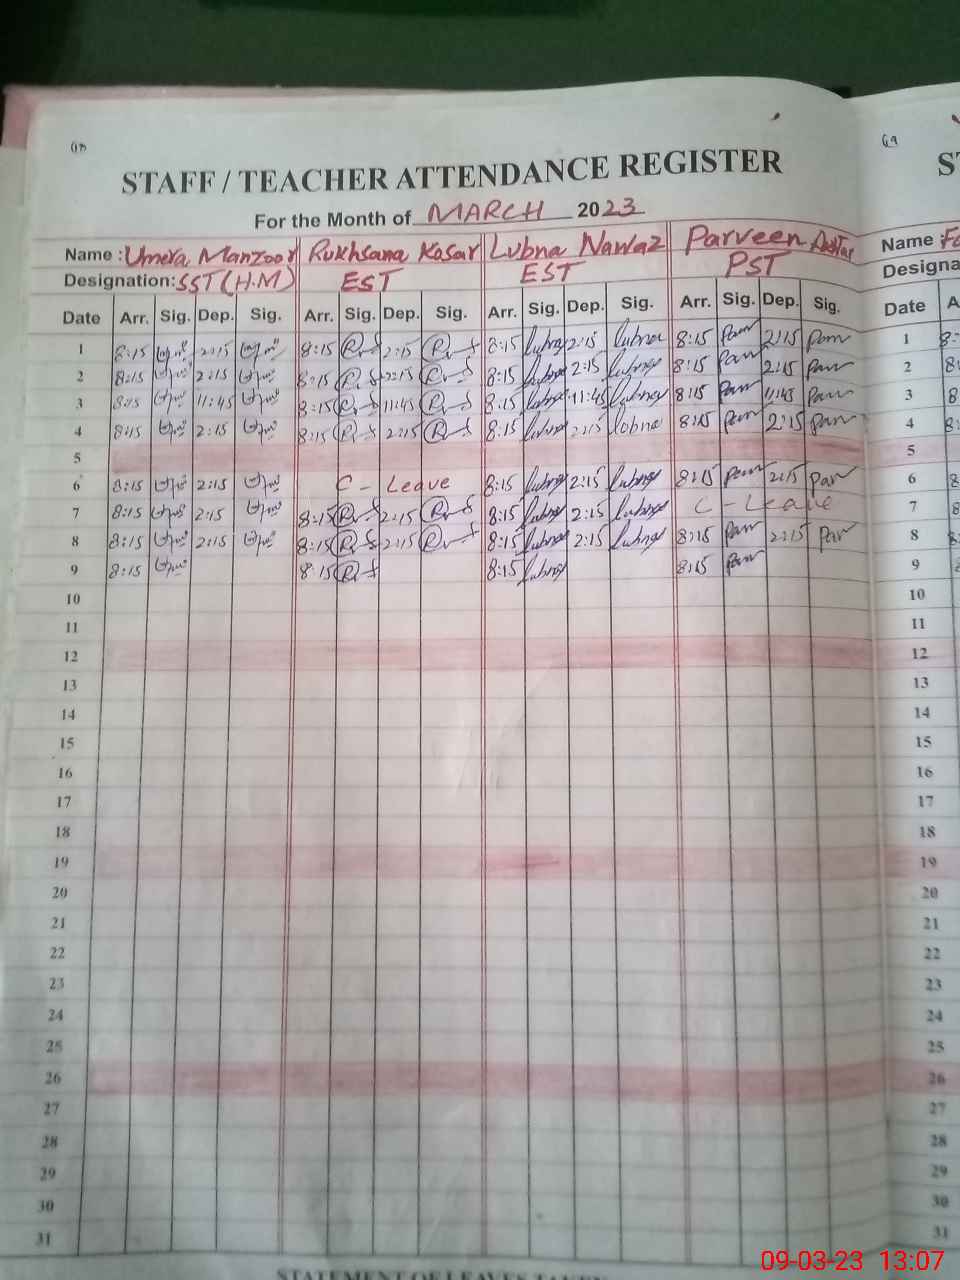 STAFF / TEACHER ATTENDANCE REGISTER
For the Month of MARCH 2023
Name: Umera Manzoor Rukhsana Kosar Lubna Nawaz Parveen Name
Designation: SST (H.M) EST EST PST Designa
Date Arr. Sig. Dep. Sig. Arr. Sig. Dep. Sig. Arr. Sig. Dep. Sig. Arr. Sig. Dep. Sig. Date A
1 8:15 2:15 8:15 2:15 8:15 lubna 2:15 lubna 8:15 Parv 2:15 Parv 1
2 8:15 2:15 8:15 2:15 8:15 lubna 2:15 lubna 8:15 Parv 2:15 Parv 2
3 8:15 11:45 8:15 11:45 8:15 lubna 11:45 lubna 8:15 Parv 11:45 Parv 3
4 8:15 2:15 8:15 2:15 8:15 lubna 2:15 lobna 8:15 Parv 2:15 Parv 4
5 5
6 8:15 2:15 C - Leave 8:15 lubna 2:15 lubna 8:15 Parv 2:15 Parv 6
7 8:15 2:15 8:15 2:15 8:15 lubna 2:15 lubna C - Leave 7
8 8:15 2:15 8:15 2:15 8:15 lubna 2:15 lubna 8:15 Parv 2:15 Par 8
9 8:15 8:15 8:15 lubna 8:15 Parv 9
10 10
11 11
12 12
13 13
14 14
15 15
16 16
17 17
18 18
19 19
20 20
21 21
22 22
23 23
24 24
25 25
26 26
27 27
28 28
29 29
30 30
31 31
STATEMENT OF LEAVES TAKEN
09-03-23 13:07